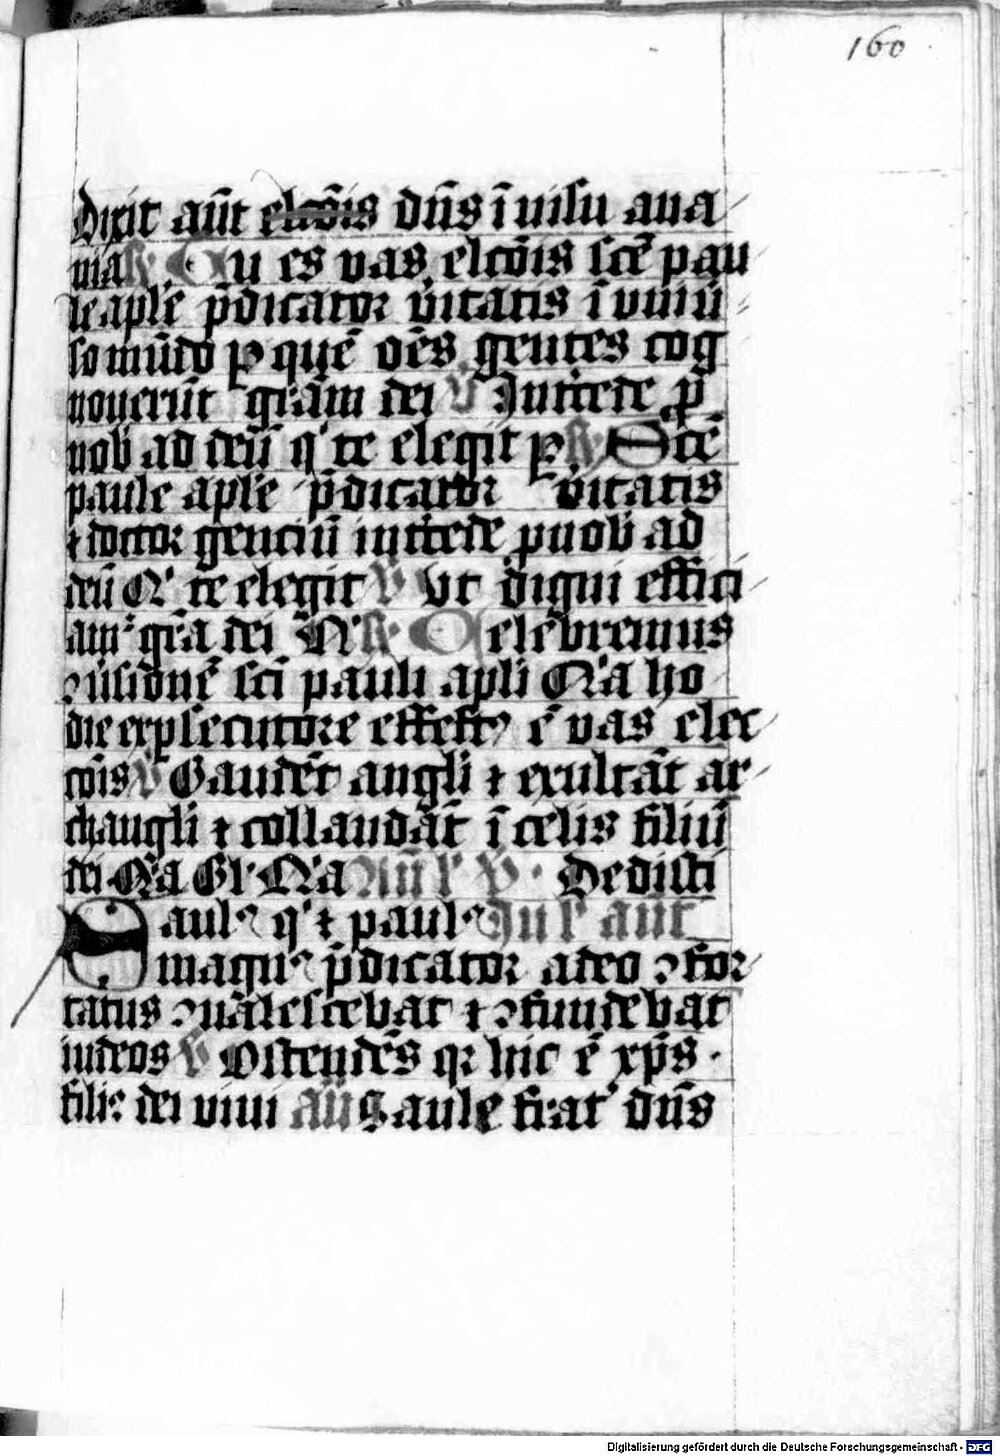 160
Dixit aūt elcōis dn̄s ī visu ana
nia℟ Tu es vas elcōis scē pau
le aplē p̄dicator v̄itatis ī univ̄
so mūdo ꝑ quē oēs gentes cog
noverūt grām dei ℣ Intcede ꝓ
nob ad deū qͥ te elegit ꝑ ℟ Scē
paule aplē p̄dicator v̄itatis
⁊ doctor genciū intcede ꝓ nob ad
deū Qͥ te elegit ℣ Ut digni effici
amᷣ grā dei Qͥ ℟ Celebremus
ꝯv̄sionē sci pauli apli Qͥa ho
die ex ꝑsecutore effectꝰ ē vas elec
cōis ℣ Gaudēt angli ⁊ exultāt ar
changli ⁊ collaudāt ī celis filiū
dei Qͥa Gl Qͥa ℣ Dedisti
Saulꝰ qͥ ⁊ paulꝰ aūt
magnꝰ p̄dicator adeo ꝯfor
tatus ꝯvalescebat ⁊ ꝯfundebat
iudeos ℣ Ostendēs qꝛ hic ē xp̄s
filiꝰ dei vivi an̄ Saule frat dn̄s
Digitalisierung gefördert durch die Deutsche Forschungsgemeinschaft - DFG